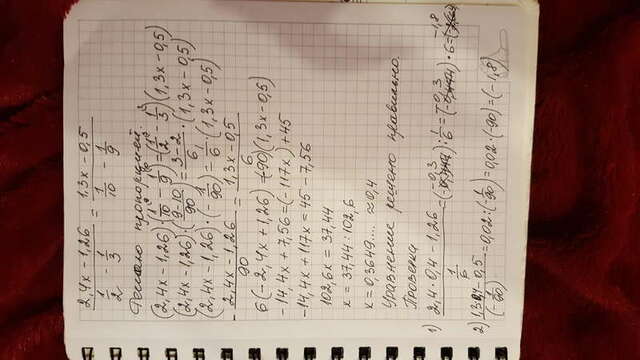 (2,4x − 1,26)/(1/2 − 1/3) = (1,3x − 0,5)/(1/10 − 1/9)
Решаю пропорцией.
(2,4x − 1,26)·(1/10 − 1/9) = (1/2 − 1/3)(1,3x − 0,5)
(2,4x − 1,26)·((9−10)/90) = (3−2)/6 · (1,3x − 0,5)
(2,4x − 1,26)·(−1/90) = 1/6 · (1,3x − 0,5)
− (2,4x − 1,26)/90 = (1,3x − 0,5)/6
6(−2,4x + 1,26) = −90(1,3x − 0,5)
−14,4x + 7,56 = (−117x) + 45
−14,4x + 117x = 45 − 7,56
102,6x = 37,44
x = 37,44 : 102,6
x = 0,3649.... ≈ 0,4
Уравнение решено правильно.
Проверка
1) (2,4·0,4 − 1,26)/(1/6) = (−0,3) : 1/6 = (−0,3)·6 = (−1,8
2) (1,3·0,4 − 0,5)/(−1/90) = 0,02 : (−1/90) = 0,02·(−90) = (−1,8)